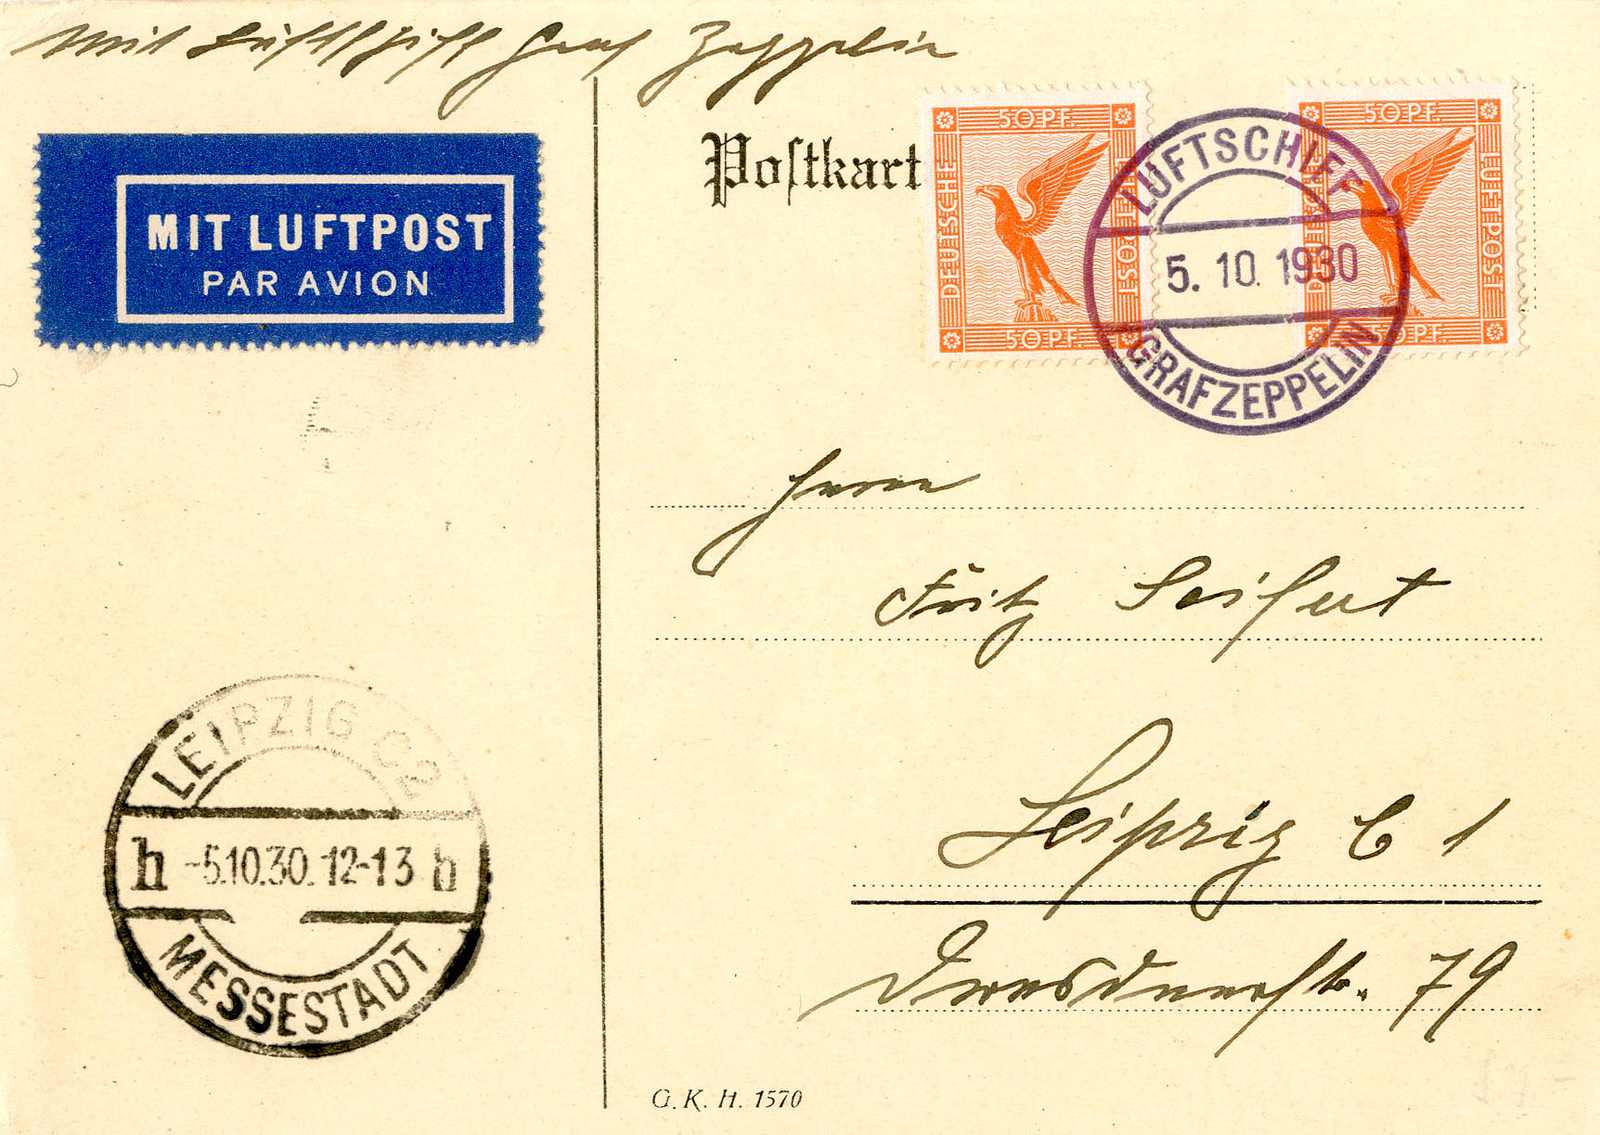 Mit Luftschiff Graf Zeppelin
MIT LUFTPOST
PAR AVION
Postkart
50 PF.
DEUTSCHE
LUFTPOST
50 PF.
50 PF.
DEUTSCHE
LUFTPOST
50 PF.
LUFTSCHIFF
5. 10. 1930
GRAF ZEPPELIN
Herrn
Fritz Seifert
Leipzig C 1
Dresdnerstr. 79
LEIPZIG C2
h -5.10.30. 12-13 h
MESSESTADT
G. K. H. 1570